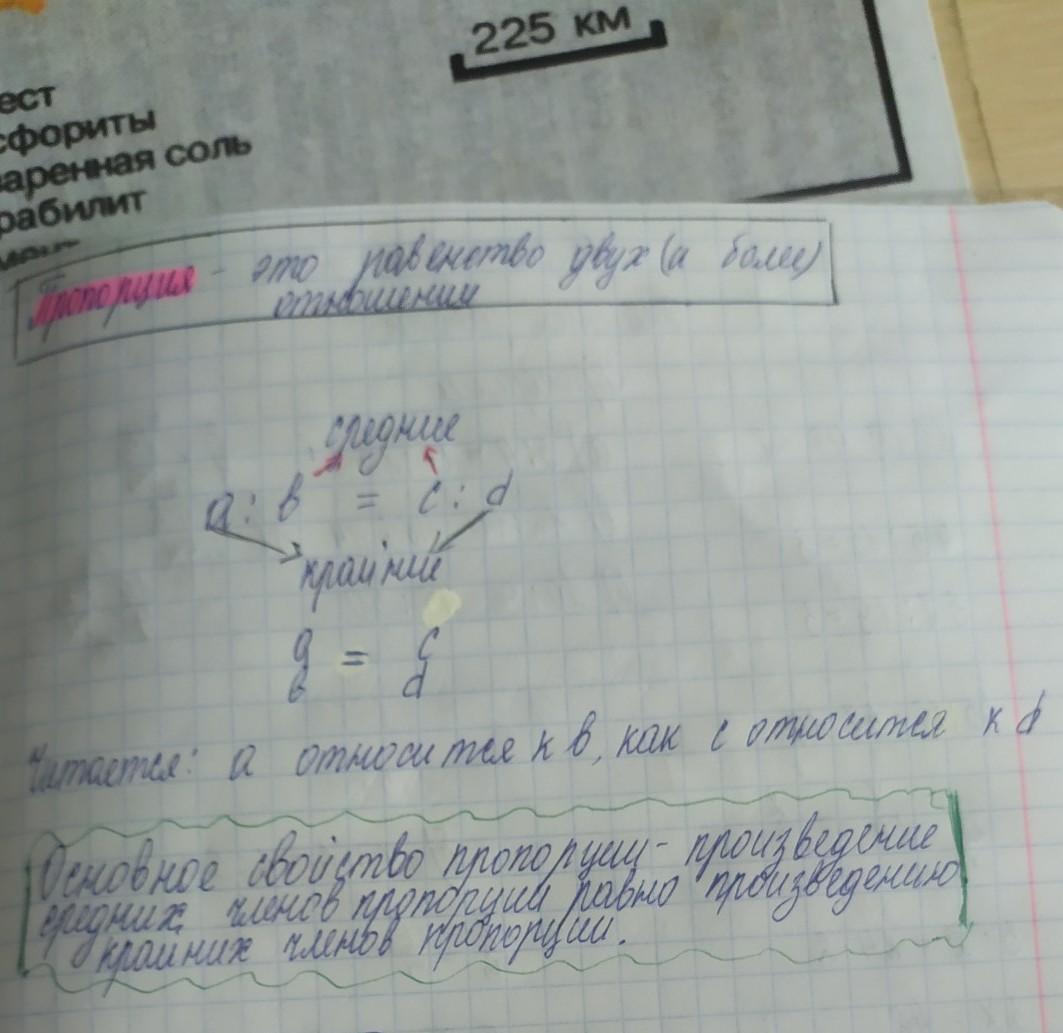 225 км
ест
сфориты
варенная соль
рабилит
Пропорция - это равенство двух (и более)
отношений
средние
a : b = c : d
крайние
a = c
b d
Читается: a относится к b, как c относится к d
Основное свойство пропорции - произведение
средних членов пропорции равно произведению
крайних членов пропорции.